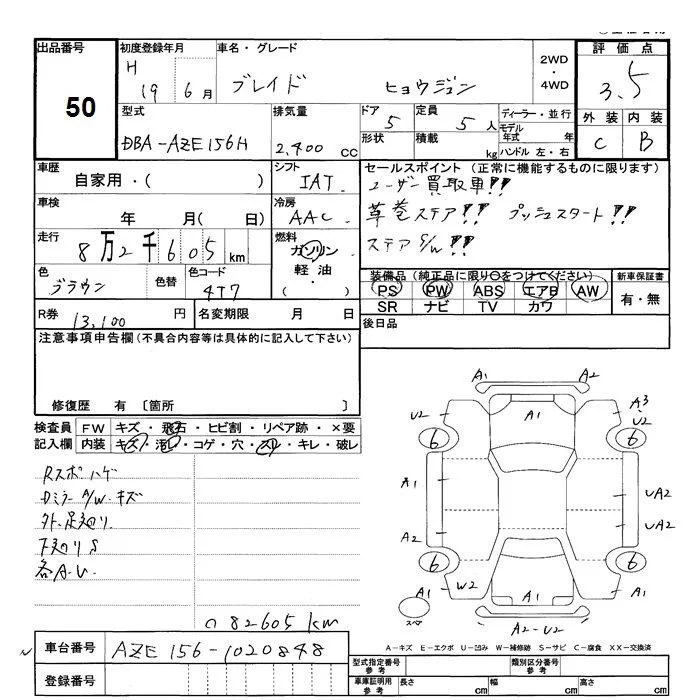 出品番号 初度登録年月 車名・グレード 2WD・4WD 評価点
50 H 19 6月 ブレイド ヒョウジュン 3.5
型式 排気量 ドア 定員 ディーラー・並行 外装 内装
DBA-AZE156H 2,400 cc 5 5人 モデル年式 年 C B
形状 積載 kg ハンドル 左・右
車歴 シフト セールスポイント (正常に機能するものに限ります)
自家用・( ) IAT ユーザー買取車!!
車検 冷房 革巻ステア!! プッシュスタート!!
年 月( 日) AAC ステアS/W!!
走行 燃料
8万2千605km ガソリン
軽油・( )
色 色替 色コード 装備品(純正品に限り○をつけてください) 新車保証書
ブラウン 4T7 PS PW ABS エアB AW 有・無
SR ナビ TV カワ
R券 13,100円 名変期限 月 日 後日品
注意事項申告欄(不具合内容等は具体的に記入して下さい)
修復歴 有 〔箇所 〕
検査員 FW キズ・飛石・ヒビ割・リペア跡・×要
記入欄 内装 キズ・汚・コゲ・穴・スレ・キレ・破レ
Rスポハゲ
DミラーA/W・キズ
下廻りS
各A.U.
82605km
A1
A2
U2
A3
U2
6
6
A1
A1
UA2
UA2
A2
6
6
A1
W2
A1
A1
スペ
A2-U2
A-キズ E-エクボ U-凹み W-補修跡 S-サビ C-腐食 XX-交換済
車台番号 AZE156-1020848
登録番号
型式指定番号 参考 類別区分番号 参考
車庫証明用 参考 長さ cm 幅 cm 高さ cm